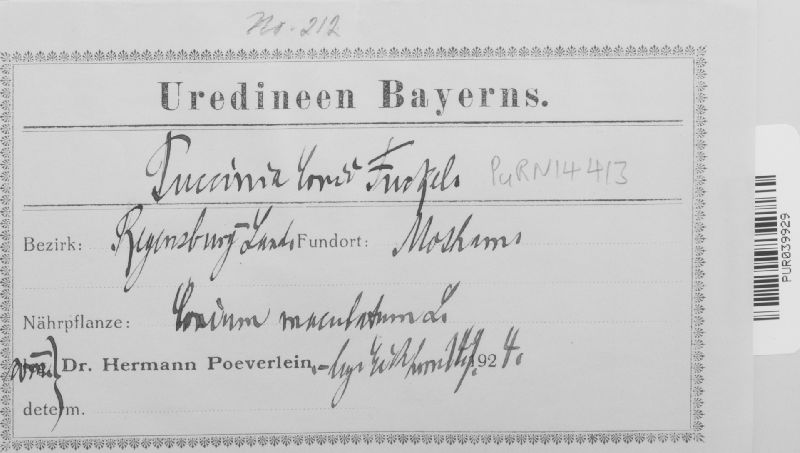 No. 212
Uredineen Bayerns.
Puccinia Conii Fuckel. PURN14413
Bezirk: Regensburg-Land. Fundort: Mosham.
Nährpflanze: Conium maculatum L.
comm. Dr. Hermann Poeverlein, - leg. 1924.
determ.
PUR039929